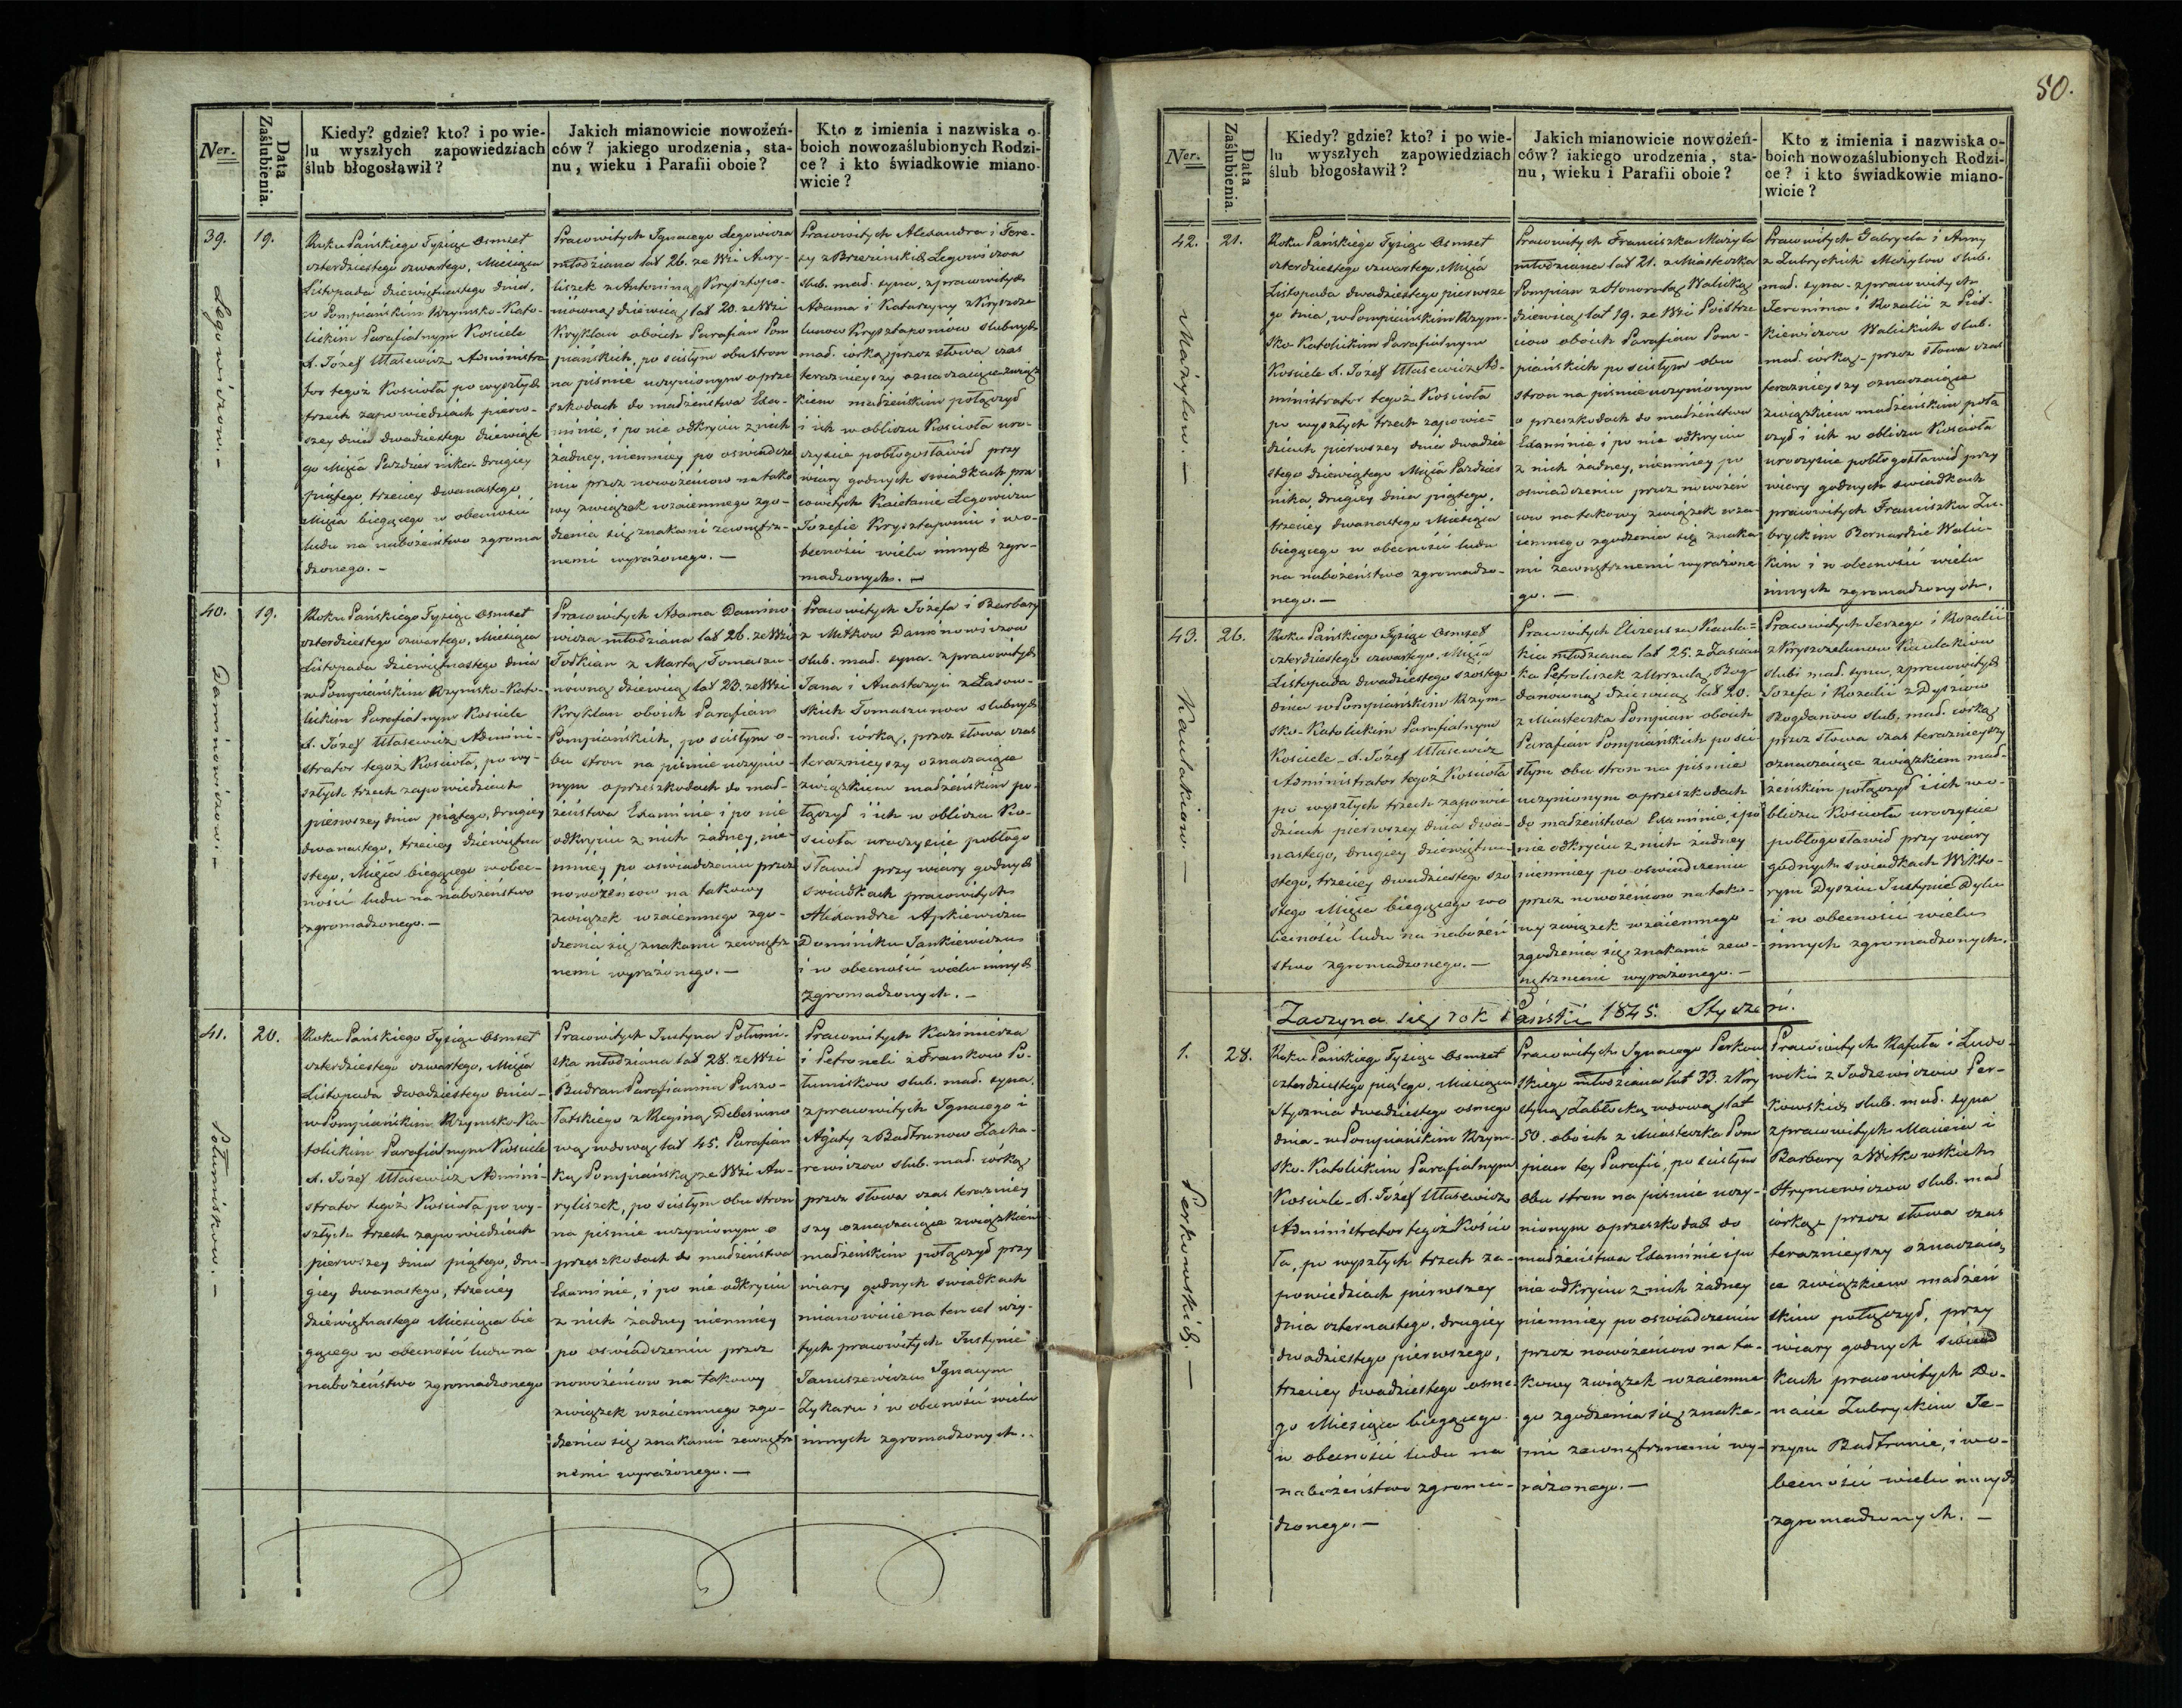 Ner.
Data
Zaślubienia.
Kiedy? gdzie? kto? i po wie-
lu wyszłych zapowiedziach
ślub błogosławił?
Jakich mianowicie nowożeń-
ców? jakiego urodzenia, sta-
nu, wieku i Parafii oboie?
Kto z imienia i nazwiska o-
boich nowozaślubionych Rodzi-
ce? i kto świadkowie miano-
wicie?
39.
Legowiczow. –
19.
Roku Pańskiego Tysiąc Osmset
czterdziestego czwartego, Miesiąca
Listopada dziewiętnastego dnia,
w Pompiańskim Rzymsko-Kato-
lickim Parafialnym Kosciele
X. Józef Ułasewicz Administra
tor tegoż Koscioła po wyszłych
trzech zapowiedziach pierw-
szey dnia dwadziestego dziewiąte
go Msca Pazdziernika drugiey
piątego, trzeciey dwunastego
Msca bieżącego w obecnosci
ludu na nabożenstwo zgroma
dzonego. –
Pracowitych Ignacego Legowicza
młodziana lat 26. ze Wsi Aury-
liszek z Antoniną Krysztopo-
niówną dziewicą lat 20. ze Wsi
Kryklan oboich Parafian Pom
piańskich, po scisłym obu stron
na pismie uczynionym o prze
szkodach do małżeństwa Exa-
minie, i po nie odkryciu z nich
żadney, niemniey po oswiadcze
niu przez nowożeńcow na tako
wy związek wzaiemnego zgo-
dzenia się znakami zewnętrz-
nemi wyrażonego. –
Pracowitych Alexandra i Tere-
sy z Brzezinskich Legowiczow
slub. mał. syna, z pracowitych
Adama i Katarzyny z Kryszcze
lunow Krysztaponiow slubnych
mał. córką przez słowa czas
teraznieyszy oznaczaiące związ
kiem małżeńskim połączył
i ich w obliczu Kosciola uro-
czyscie pobłogosławił przy
wiary godnych swiadkach pra
cowitych Kaietanie Legowiczu
Józefie Krysztaponiu i wo-
becnosci wielu innych zgro-
madzonych. –
40.
Daminowiczow. –
19.
Roku Pańskiego Tysiąc Osmset
czterdziestego czwartego, Miesiąca
Listopada dziewiętnastego dnia
w Pompiańskim Rzymsko-Kato-
lickim Parafialnym Kosciele
X. Józef Ułasewicz Admini-
strator tegoż Kosciola, po wy-
szłych trzech zapowiedziach
pierwszey dnia piątego, drugiey
dwunastego, trzeciey dziewiętna
stego, Msca bieżącego wobec-
ności ludu na nabożeństwo
zgromadzonego. –
Pracowitych Adama Damino
wicza młodziana lat 26. ze Wsi
Toskian z Martą Tomaszu-
nówną dziewicą lat 23. ze Wsi
Kryklan oboich Parafian
Pompiańskich, po scisłym o-
bu stron na pismie uczynio-
nym o przeszkodach do mał-
żeństwa Examinie i po nie
odkryciu z nich żadney, nie-
mniey po oswiadczeniu przez
nowożeńcow na takowy
związek wzaiemnego zgo-
dzenia się znakami zewnętrz
nemi wyrażonego. –
Pracowitych Józefa i Barbary
z Mitkow Daminowiczow
slub. mał. syna – z pracowitych
Jana i Anastazyi z Łasow-
skich Tomaszunow slubnych
mał. córką, przez słowa czas
teraznieyszy oznaczaiące
związkiem małżeńskim po-
łączył i ich w obliczu Ko-
scioła uroczyscie pobłogo
sławił przy wiary godnych
swiadkach pracowitych
Alexandrze Apkiewiczu
Dominiku Jankiewiczu
i w obecności wielu innych
zgromadzonych. –
41.
Połumiskow. –
20.
Roku Pańskiego Tysiąc Osmset
czterdziestego czwartego, Msca
Listopada dwadziestego dnia –
w Pompiańskim Rzymsko-Ka-
tolickim Parafialnym Kosciele
X. Józef Ułasewicz Admini-
strator tegoż Kosciola po wy-
szłych trzech zapowiedziach
pierwszey dnia piątego, dru-
giey dwunastego, trzeciey
dziewiętnastego Miesiąca bie
żącego w obecności ludu na
nabożeństwo zgromadzonego
Pracowitych Justyna Połumi-
ska młodziana lat 28. ze Wsi
Budran Parafianina Puszo-
łatskiego z Reginą Debesiuno
wą wdową lat 45. Parafian
ką Pompiańską ze Wsi Au-
ryliszek, po scisłym obu stron
na pismie uczynionym o
przeszkodach do małżeństwa
Examinie, i po nie odkryciu
z nich żadney niemniey
po oswiadczeniu przez
nowożeńcow na takowy
związek wzaiemnego zgo-
dzenia się znakami zewnętrz
nemi wyrażonego. –
Pracowitych Kazimierza
i Petroneli z Frankow Po-
łumiskow slub. mał. syna,
z pracowitych Ignacego i
Agaty z Bałtrunow Zacha-
rewiczow slub. mał. córką
przez słowa czas terazniey
szy oznaczaiące związkiem
małżeńskim połączył przy
wiary godnych swiadkach
mianowicie na ten cel wzy-
tych pracowitych Justynie
Januszewiczu Ignacym
Zykaru i w obecności wielu
innych zgromadzonych. –
50.
Ner.
Data
Zaślubienia.
Kiedy? gdzie? kto? i po wie-
lu wyszłych zapowiedziach
ślub błogosławił?
Jakich mianowicie nowożeń-
ców? iakiego urodzenia, sta-
nu, wieku i Parafii oboie?
Kto z imienia i nazwiska o-
boich nowozaślubionych Rodzi-
ce? i kto świadkowie miano-
wicie?
42.
Mażylow. –
21.
Roku Pańskiego Tysiąc Osmset
czterdziestego czwartego, Msca
Listopada dwadziestego pierwsze
go dnia, w Pompiańskim Rzym-
sko-Katolickim Parafialnym
Kosciele X. Józef Ułasewicz Ad-
ministrator tegoż Kosciola
po wyszłych trzech zapowie-
dziach pierwszey dnia dwadzie
stego dziewiątego Msca Pazdzier
nika, drugiey dnia piątego,
trzeciey dwunastego Miesiąca
bieżącego w obecności ludu
na nabożeństwo zgromadzo-
nego. –
Pracowitych Franciszka Mażyla
młodziana lat 21. z Miasteczka
Pompian z Honoratą Walicką
dziewicą lat 19. ze Wsi Poistrze
ciow oboich Parafian Pom-
piańskich po scisłym obu
stron na pismie uczynionym
o przeszkodach do małżeństwa
Examinie i po nie odkryciu
z nich żadney, niemniey po
oswiadczeniu przez nowożeń
cow na takowy związek wza-
iemnego zgodzenia się znaka
mi zewnętrznemi wyrażone
go. –
Pracowitych Gabryela i Anny
z Zubryckich Mażylow slub.
mał. syna – z pracowitych
Jeronima i Rozalii z Piet-
kiewiczow Walickich slub.
mał. córką – przez słowa czas
teraznieyszy oznaczaiące
związkiem małżeńskim połą
czył i ich w obliczu Kosciola
uroczyscie pobłogosławił przy
wiary godnych swiadkach
pracowitych Franciszku Zu-
bryckim Bernardzie Walic-
kim i w obecności wielu
innych zgromadzonych.
43.
Kaulakiow. –
26.
Roku Pańskiego Tysiąc Osmset
czterdziestego czwartego, Msca
Listopada dwadziestego szostego
dnia w Pompiańskim Rzym-
sko-Katolickim Parafialnym
Kosciele – X. Józef Ułasewicz
Administrator tegoż Kosciola
po wyszłych trzech zapowie
dziach pierwszey dnia dwu-
nastego, drugiey dziewiętna-
stego, trzeciey dwudziestego szo
stego Msca bieżącego wo
becności ludu na nabożeń
stwo zgromadzonego. –
Pracowitych Elizeusza Kaula-
kia młodziana lat 25. z Zascian
ka Petroliszek z Urszulą Bog-
danowną dziewicą lat 20.
z Miasteczka Pompian oboich
Parafian Pompiańskich po sci
słym obu stron na pismie
uczynionym o przeszkodach
do małżeństwa Examinie, i po
nie odkryciu z nich żadney
niemniey po oswiadczeniu
przez nowożeńcow na tako-
wy związek wzaiemnego
zgodzenia się znakami zew-
nętrznemi wyrażonego. –
Pracowitych Jerzego i Rozalii
z Kryszczelunow Kaulakiow
slubn. mał. syna, z pracowitych
Józefa i Rozalii z Dysziow
Bogdanow slub. mał. córką
przez słowa czas teraznieyszy
oznaczaiące związkiem mał-
żeńskim połączył i ich wo-
bliczu Kosciola uroczyscie
pobłogosławił przy wiary
godnych swiadkach Wikto-
rym Dysziu Justynie Dylu
i w obecności wielu
innych zgromadzonych.
Zaczyna się rok Pański 1845. Styczeń.
1.
Perkowskich. –
28.
Roku Pańskiego Tysiąc Osmset
czterdziestego piątego, Miesiąca
Stycznia dwadziestego osmego
dnia – w Pompiańskim Rzym-
sko-Katolickim Parafialnym
Kosciele – X. Józef Ułasewicz
Administrator tegoż Koscio
ła, po wyszłych trzech za-
powiedziach pierwszey
dnia czternastego, drugiey
dwadziestego pierwszego,
trzeciey dwadziestego osme-
go Miesiąca bieżącego
w obecności ludu na
nabożeństwo zgroma-
dzonego. –
Pracowitych Ignacego Perkow
skiego młodziana lat 33. z Kry
styną Zabłocką wdową lat
50. oboich z Miasteczka Pom
pian tey Parafii, po scisłym
obu stron na pismie uczy-
nionym o przeszkodach do
małżeństwa Examinie i po
nie odkryciu z nich żadney
niemniey po oswiadczeniu
przez nowożeńcow na ta-
kowy związek wzaiemne
go zgodzenia się znaka-
mi zewnętrznemi wy-
rażonego. –
Pracowitych Rafała i Ludo-
wiki z Jodzewiczow Per-
kowskich slub. mał. syna
z pracowitych Macieia i
Barbary z Witkowskich
Hryniewiczow slub. mał.
córką – przez słowa czas
teraznieyszy oznaczaią
ce związkiem małżeń
skim połączył, przy
wiary godnych swiad
kach pracowitych Do-
nacie Zubryckim Je-
rzym Bałtrunie, i wo-
becności wielu innych
zgromadzonych. –